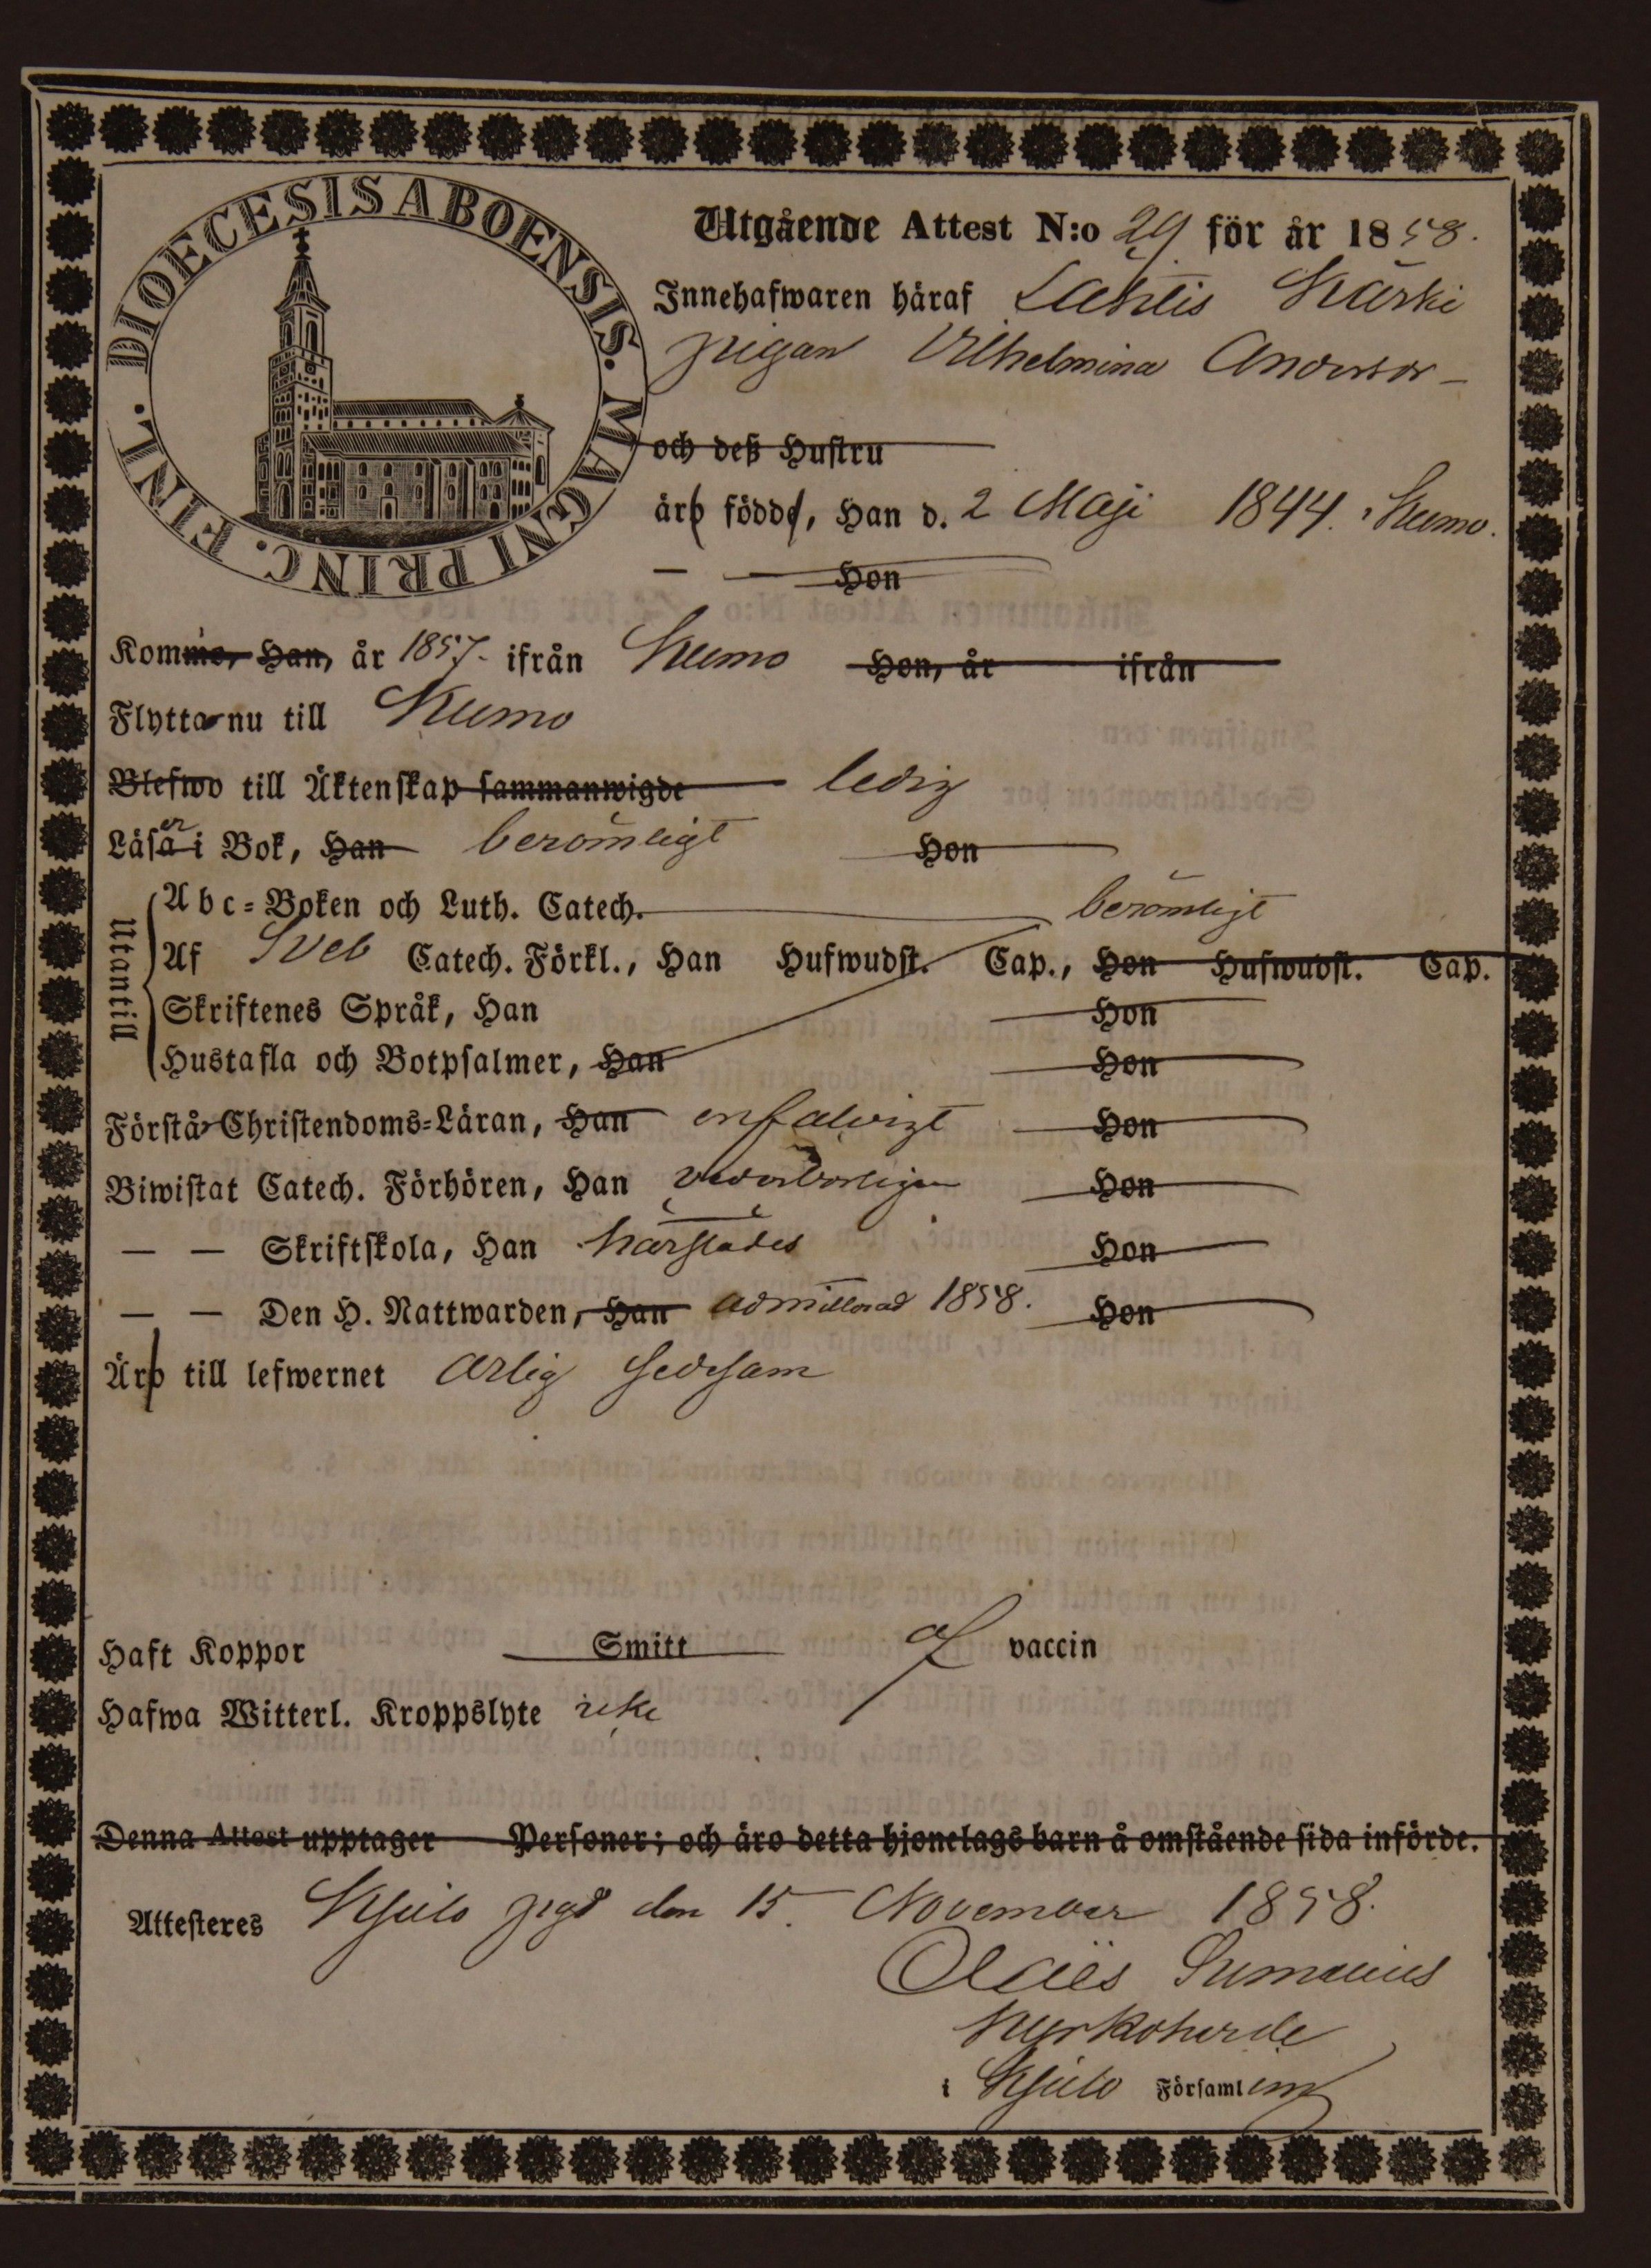 DIOECESIS ABOENSIS. MAGNI PRINC. FINL.
Utgående Attest N:o 29 för år 1858.
Innehafwaren häraf Lahtis Kärki
pigan Vilhelmina Anders
och deß Hustru
äro födde, Han d. 2 Maji 1844. Kumo.
— Hon
Kommo, Han, år 1857. ifrån Kumo Hon, år ifrån
Flytta nu till Kumo
Blefwo till Äktenskap sammanwigde ledig
Läsa er i Bok, Han berömligt Hon
Utantill
Abc-Boken och Luth. Catech. berömligt
Af Sveb Catech. Förkl., Han Hufwudst. Cap., Hon Hufwudst. Cap.
Skriftenes Språk, Han Hon
Hustafla och Botpsalmer, Han Hon
Förstå Christendoms-Läran, Han enfaldigt Hon
Biwistat Catech. Förhören, Han vederbörligen Hon
— — Skriftskola, Han härstädes Hon
— — Den H. Nattwarden, Han admitterad 1858. Hon
Äro till lefwernet ärlig sedesam
Haft Koppor Smitt af vaccin
Hafwa Witterl. Kroppslyte icke
Denna Attest upptager Personer; och äro detta hjonelags barn å omstående sida införde.
Attesteres Kjulo pgd den 15. November 1858.
Olaus Sumelius
Kyrkoherde
i Kjulo Församling